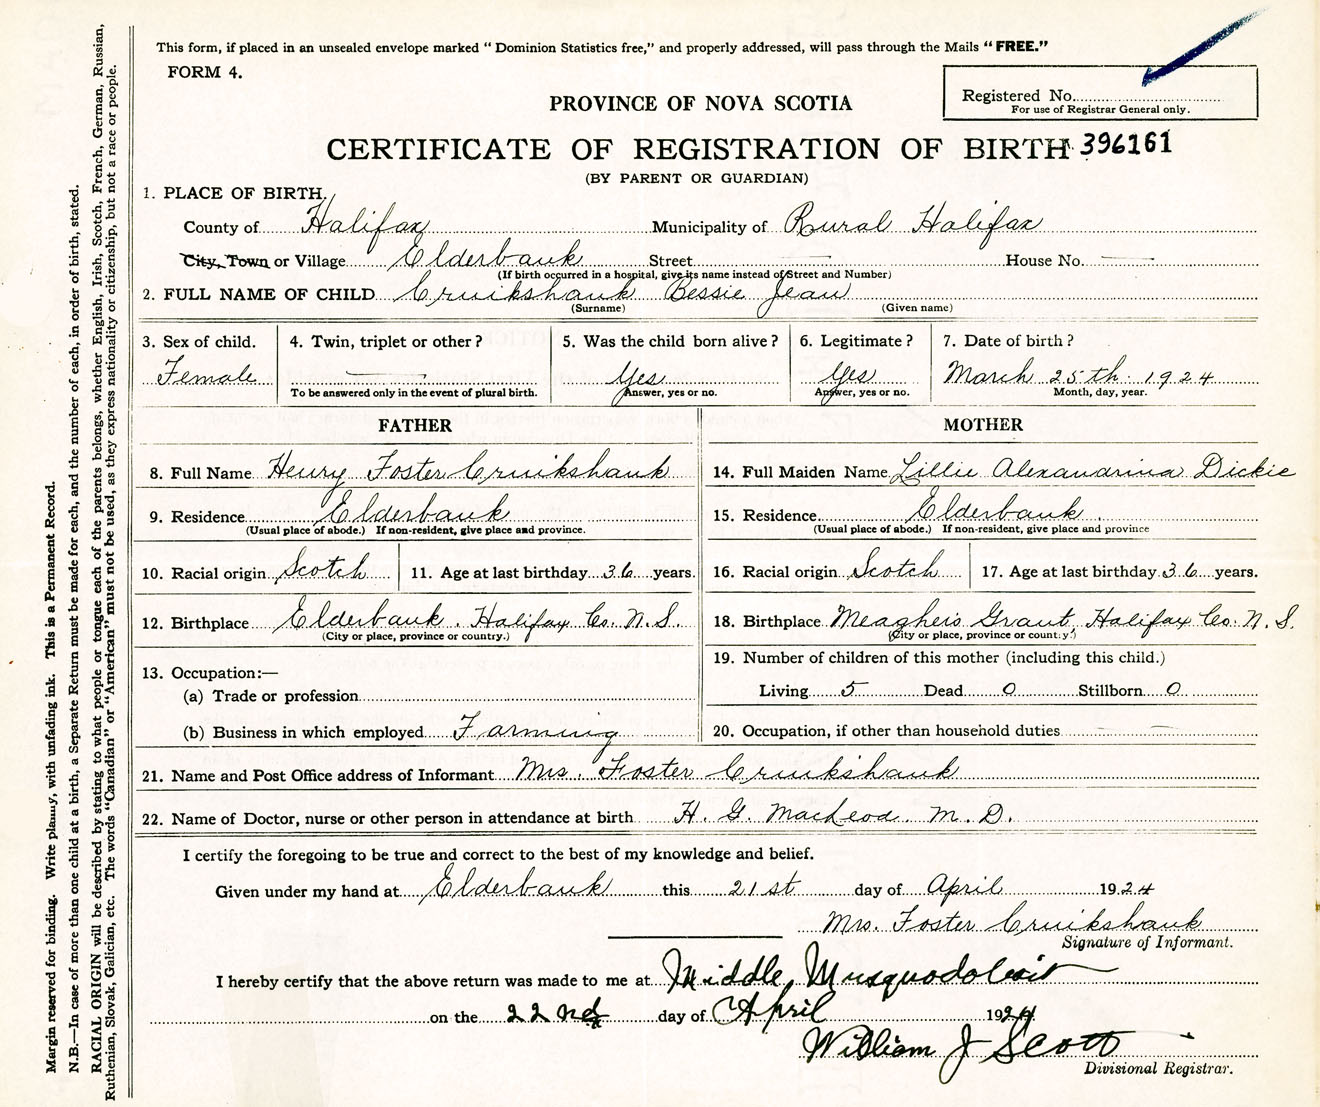 This form, if placed in an unsealed envelope marked “ Dominion Statistics free,” and properly addressed, will pass through the Mails “ FREE.”
FORM 4.
Registered No.
For use of Registrar General only.
PROVINCE OF NOVA SCOTIA
CERTIFICATE OF REGISTRATION OF BIRTH 396161
(BY PARENT OR GUARDIAN)
1. PLACE OF BIRTH.
County of Halifax Municipality of Rural Halifax
City, Town or Village Elderbank Street — House No. —
(If birth occurred in a hospital, give its name instead of Street and Number)
2. FULL NAME OF CHILD Cruikshank Bessie Jean
(Surname) (Given name)
3. Sex of child. 4. Twin, triplet or other ? 5. Was the child born alive ? 6. Legitimate ? 7. Date of birth ?
Female — Yes Yes March 25th. 1924
To be answered only in the event of plural birth. Answer, yes or no. Answer, yes or no. Month, day, year.
FATHER MOTHER
8. Full Name Henry Foster Cruikshank 14. Full Maiden Name Lillie Alexandrina Dickie
9. Residence Elderbank 15. Residence Elderbank.
(Usual place of abode.) If non-resident, give place and province. (Usual place of abode.) If non-resident, give place and province
10. Racial origin Scotch 11. Age at last birthday 36 years. 16. Racial origin Scotch 17. Age at last birthday 36 years.
12. Birthplace Elderbank. Halifax Co. N.S. 18. Birthplace Meaghers Grant, Halifax Co. N.S.
(City or place, province or country.) (City or place, province or country.)
13. Occupation:— 19. Number of children of this mother (including this child.)
(a) Trade or profession Living 5 Dead 0 Stillborn 0
(b) Business in which employed Farming 20. Occupation, if other than household duties —
21. Name and Post Office address of Informant Mrs. Foster Cruikshank
22. Name of Doctor, nurse or other person in attendance at birth H. G. MacLeod. M. D.
I certify the foregoing to be true and correct to the best of my knowledge and belief.
Given under my hand at Elderbank this 21st day of April 1924
Mrs. Foster Cruikshank
Signature of Informant.
I hereby certify that the above return was made to me at Middle Musquodoboit
on the 22nd day of April 1924
William J Scott
Divisional Registrar.
Margin reserved for binding. Write plainly, with unfading ink. This is a Permanent Record.
N.B.—In case of more than one child at a birth, a Separate Return must be made for each, and the number of each, in order of birth, stated.
RACIAL ORIGIN will be described by stating to what people or tongue each of the parents belongs, whether English, Irish, Scotch, French, German, Russian,
Ruthenian, Slovak, Galician, etc. The words “Canadian” or “American” must not be used, as they express nationality or citizenship, but not a race or people.